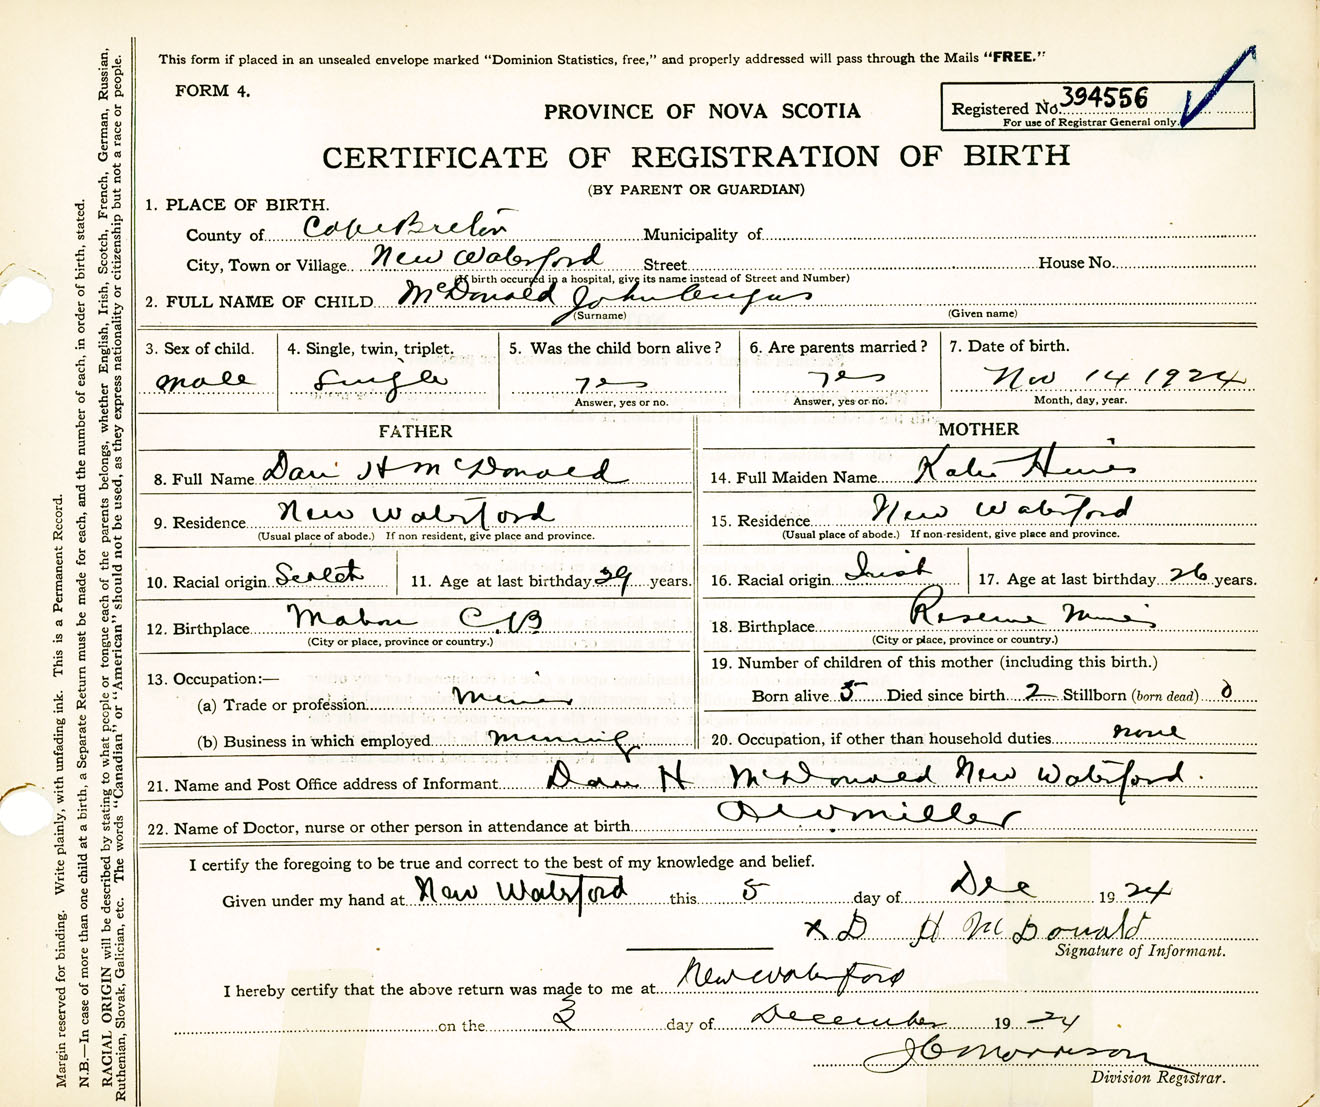 This form if placed in an unsealed envelope marked “Dominion Statistics, free,” and properly addressed will pass through the Mails “FREE.”
FORM 4.
Registered No. 394556
For use of Registrar General only.
PROVINCE OF NOVA SCOTIA
CERTIFICATE OF REGISTRATION OF BIRTH
(BY PARENT OR GUARDIAN)
1. PLACE OF BIRTH.
County of Cape Breton Municipality of
City, Town or Village New Waterford Street House No.
(If birth occurred in a hospital, give its name instead of Street and Number)
2. FULL NAME OF CHILD McDonald John Angus
(Surname) (Given name)
3. Sex of child. 4. Single, twin, triplet. 5. Was the child born alive? 6. Are parents married? 7. Date of birth.
male Single yes yes Nov 14 1924
Answer, yes or no. Answer, yes or no. Month, day, year.
FATHER MOTHER
8. Full Name Dan H McDonald 14. Full Maiden Name Katie
9. Residence New Waterford 15. Residence New Waterford
(Usual place of abode.) If non resident, give place and province. (Usual place of abode.) If non-resident, give place and province.
10. Racial origin Scotch 11. Age at last birthday 39 years. 16. Racial origin Irish 17. Age at last birthday 26 years.
12. Birthplace Mabou C.B 18. Birthplace Reserve Mines
(City or place, province or country.) (City or place, province or country.)
13. Occupation:— 19. Number of children of this mother (including this birth.)
(a) Trade or profession Miner Born alive 5 Died since birth 2 Stillborn (born dead) 0
(b) Business in which employed Mining 20. Occupation, if other than household duties none
21. Name and Post Office address of Informant Dan H McDonald New Waterford.
22. Name of Doctor, nurse or other person in attendance at birth Miller
I certify the foregoing to be true and correct to the best of my knowledge and belief.
Given under my hand at New Waterford this 5 day of Dec 1924
x D H McDonald
Signature of Informant.
I hereby certify that the above return was made to me at New Waterford
on the day of December 1924
J C Morrison
Division Registrar.
Margin reserved for binding. Write plainly, with unfading ink. This is a Permanent Record.
N.B.—In case of more than one child at a birth, a Separate Return must be made for each, and the number of each, in order of birth, stated.
RACIAL ORIGIN will be described by stating to what people or tongue each of the parents belongs, whether English, Irish, Scotch, French, German, Russian,
Ruthenian, Slovak, Galician, etc. The words “Canadian” or “American” should not be used, as they express nationality or citizenship but not a race or people.